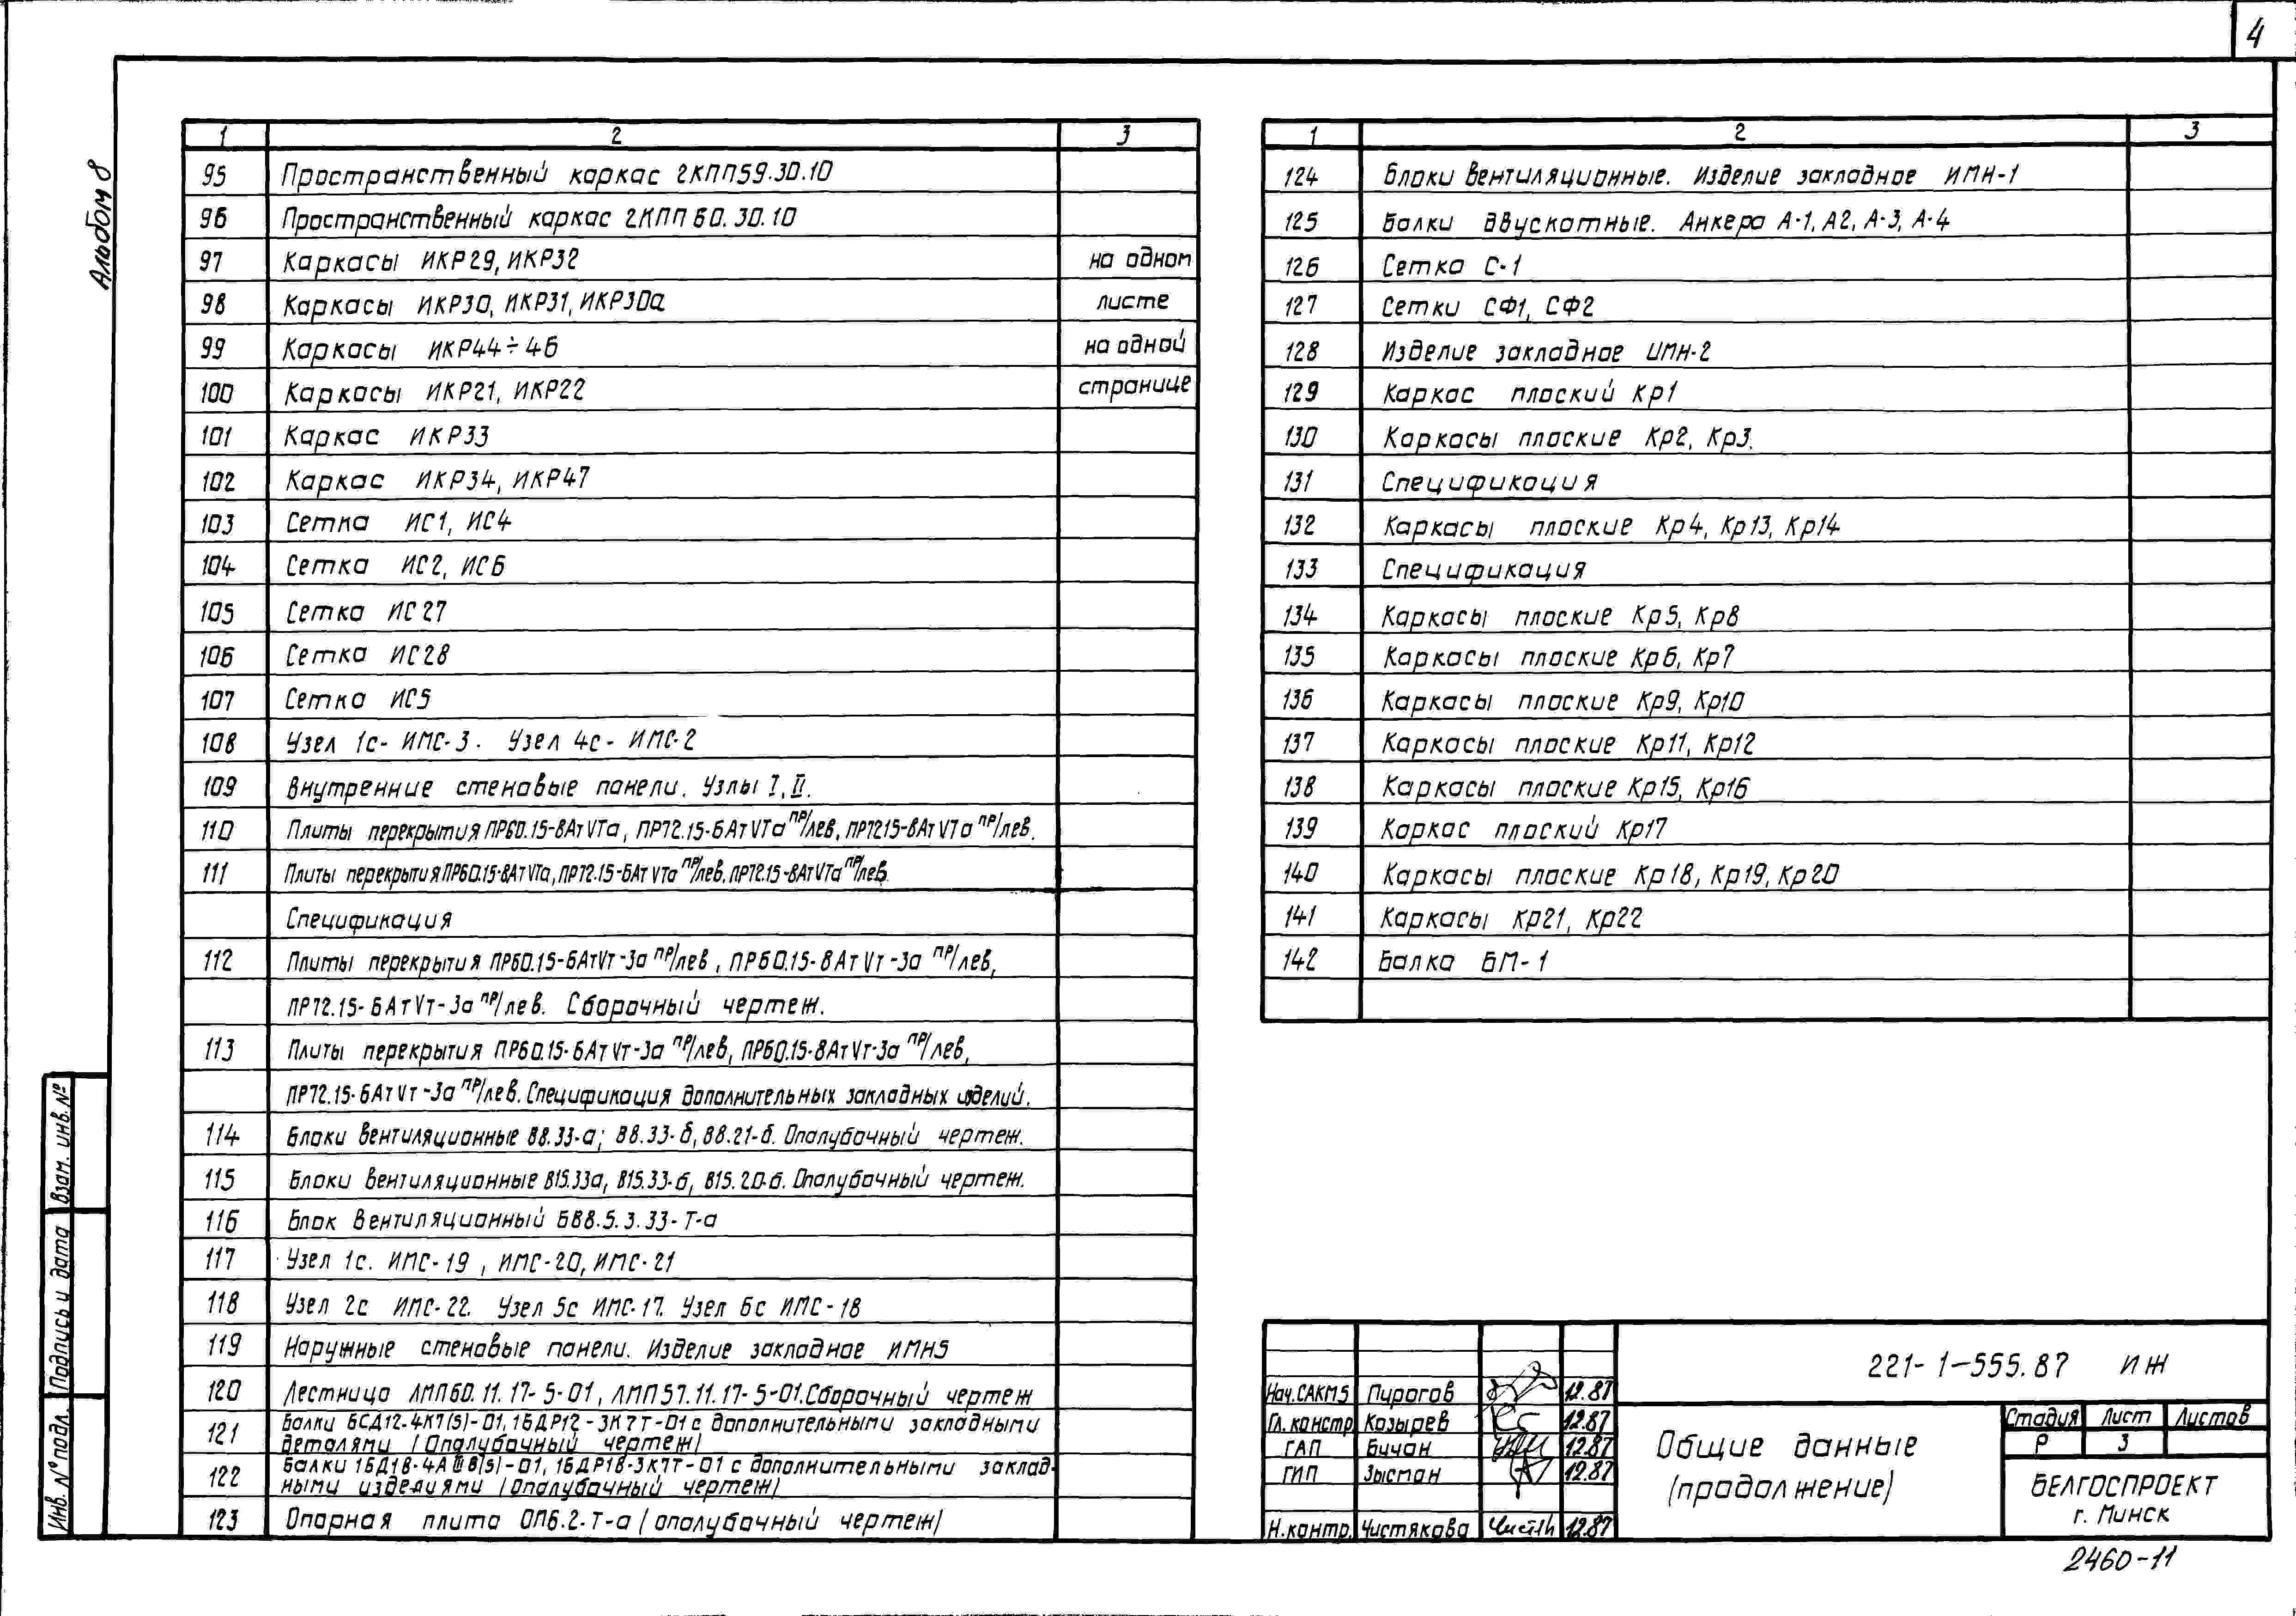 4
Альбом 8
1 2 3
95 Пространственный каркас 2КПП59.30.10
96 Пространственный каркас 2КПП60.30.10
97 Каркасы ИКР29, ИКР32 на одном
98 Каркасы ИКР30, ИКР31, ИКР30а листе
99 Каркасы ИКР44÷46 на одной
100 Каркасы ИКР21, ИКР22 странице
101 Каркас ИКР33
102 Каркас ИКР34, ИКР47
103 Сетка ИС1, ИС4
104 Сетка ИС2, ИС6
105 Сетка ИС27
106 Сетка ИС28
107 Сетка ИС5
108 Узел 1с- ИМС-3. Узел 4с- ИМС-2
109 Внутренние стеновые панели. Узлы I, II.
110 Плиты перекрытия ПР60.15-8АтVТа, ПР72.15-6АтVТа пр/лев, ПР7215-8АтVТа пр/лев.
111 Плиты перекрытия ПР60.15-8АтVТа, ПР72.15-6АтVТа пр/лев, ПР72.15-8АтVТа пр/лев.
Спецификация
112 Плиты перекрытия ПР60.15-6АтVт-3а пр/лев, ПР60.15-8АтVт-3а пр/лев,
ПР72.15-6АтVт-3а пр/лев. Сборочный чертеж.
113 Плиты перекрытия ПР60.15-6АтVт-3а пр/лев, ПР60.15-8АтVт-3а пр/лев,
ПР72.15-6АтVт-3а пр/лев. Спецификация дополнительных закладных изделий.
114 Блоки вентиляционные В8.33-а; В8.33-б, В8.21-б. Опалубочный чертеж.
115 Блоки вентиляционные В15.33а, В15.33-б, В15.20-б. Опалубочный чертеж.
116 Блок вентиляционный БВ8.5.3.33-Т-а
117 Узел 1с. ИМС-19, ИМС-20, ИМС-21
118 Узел 2с ИМС-22. Узел 5с ИМС-17. Узел 6с ИМС-18
119 Наружные стеновые панели. Изделие закладное ИМН5
120 Лестница ЛМП60.11.17-5-01, ЛМП57.11.17-5-01. Сборочный чертеж
121 Балки БСД12-4К7(5)-01, 1БДР12-3К7Т-01 с дополнительными закладными
деталями (Опалубочный чертеж)
122 Балки 1БД18-4АIIIВ(5)-01, 1БДР18-3К7Т-01 с дополнительными заклад-
ными изделиями (опалубочный чертеж)
123 Опорная плита ОП6.2-Т-а (опалубочный чертеж)
1 2 3
124 Блоки вентиляционные. Изделие закладное ИМН-1
125 Балки двускатные. Анкера А-1, А2, А-3, А-4
126 Сетка С-1
127 Сетки СФ1, СФ2
128 Изделие закладное ИМН-2
129 Каркас плоский Кр1
130 Каркасы плоские Кр2, Кр3.
131 Спецификация
132 Каркасы плоские Кр4, Кр13, Кр14
133 Спецификация
134 Каркасы плоские Кр5, Кр8
135 Каркасы плоские Кр6, Кр7
136 Каркасы плоские Кр9, Кр10
137 Каркасы плоские Кр11, Кр12
138 Каркасы плоские Кр15, Кр16
139 Каркас плоский Кр17
140 Каркасы плоские Кр18, Кр19, Кр20
141 Каркасы Кр21, Кр22
142 Балка БМ-1
Взам. инв. №
Подпись и дата
Инв. № подл.
Нач.САКМ5 Пирогов 12.87
Гл. констр Козырев 12.87
ГАП Бичан 12.87
ГИП Зысман 12.87
Н.контр. Чистякова 12.87
221-1-555.87 ИЖ
Общие данные
(продолжение)
Стадия Лист Листов
Р 3
БЕЛГОСПРОЕКТ
г. Минск
2460-11